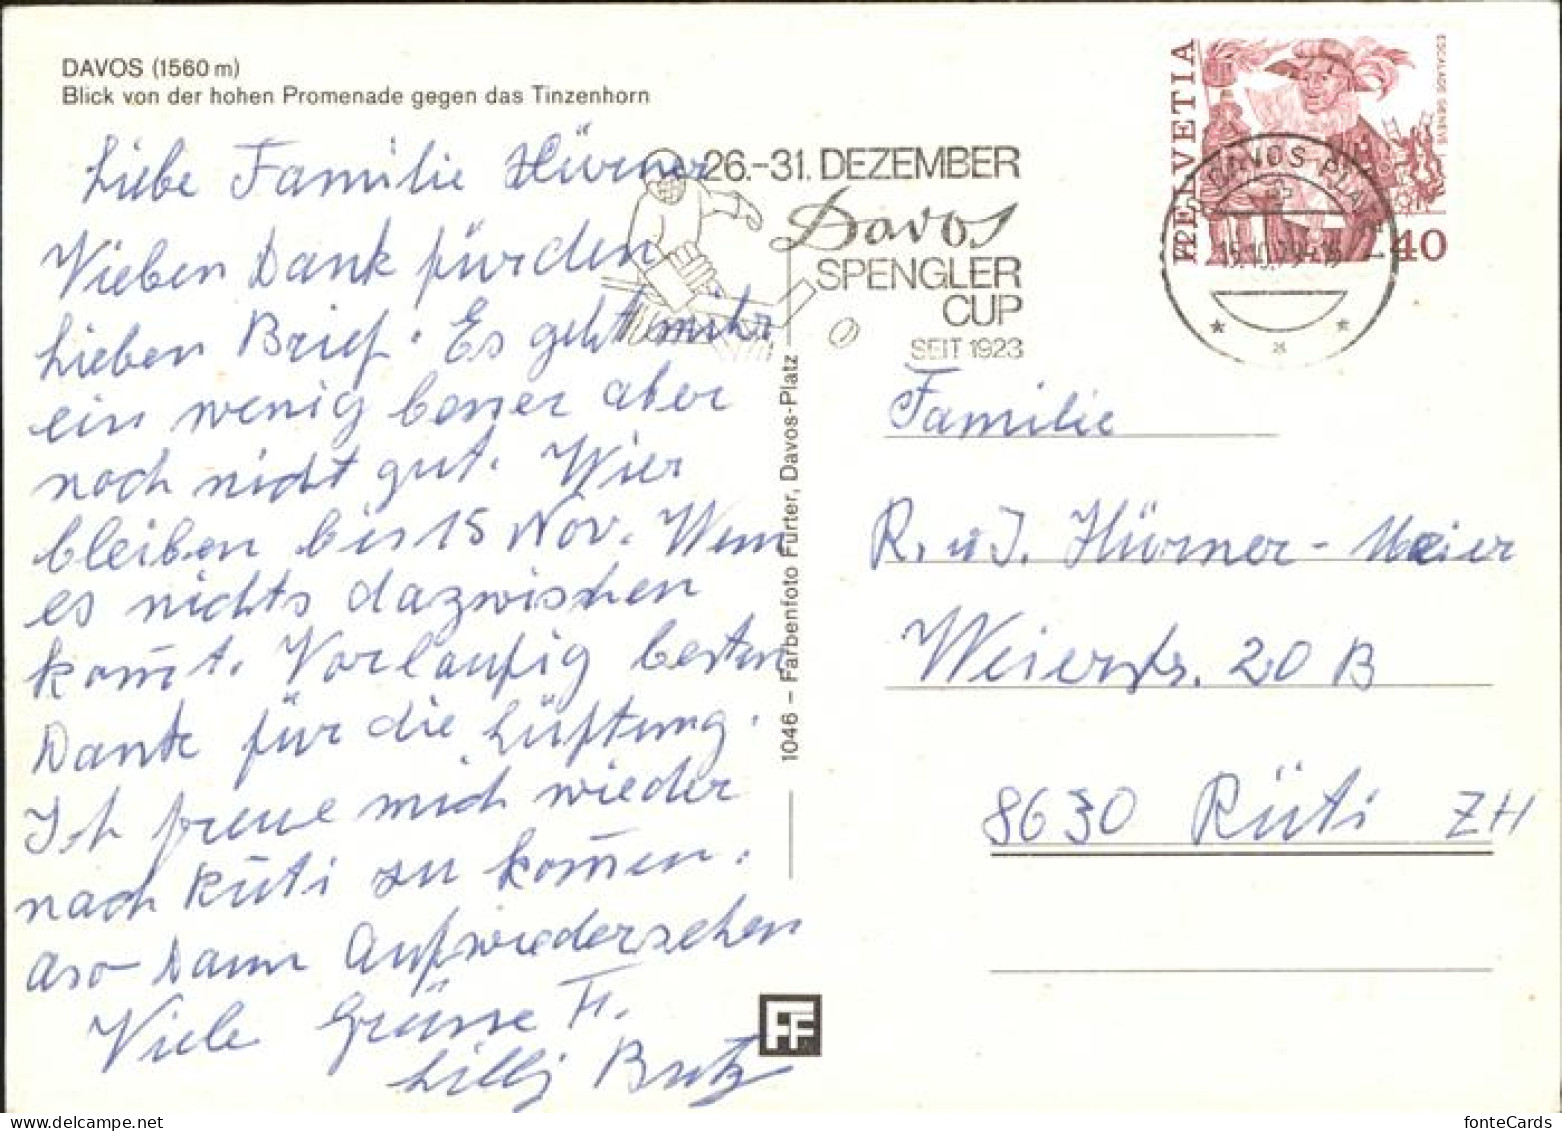 DAVOS (1560 m)
Blick von der hohen Promenade gegen das Tinzenhorn
Liebe Familie Hürner
Vieben Dank für den
lieben Brief. Es geht mihr
ein wenig besser aber
noch nicht gut. Wier
bleiben bis 15 Nov. Wenn
es nichts dazwischen
kom̅t. Vorlaufig besten
Dank für die Lüftung.
Ich freue mich wieder
nach Rüti zu kom̅en.
aso Dann Aufwiedersehen
Viele Grüsse Fr.
Lilly Butz
1046 – Farbenfoto Furter, Davos-Platz
FF
26.-31. DEZEMBER
Davos
SPENGLER
CUP
SEIT 1923
HELVETIA
ESCALADE GENÈVE
40
DAVOS PLATZ
15.10.79-15
Familie
R. u J. Hürner - Meier
Weierstr. 20 B
8630 Rüti ZH
fonteCards